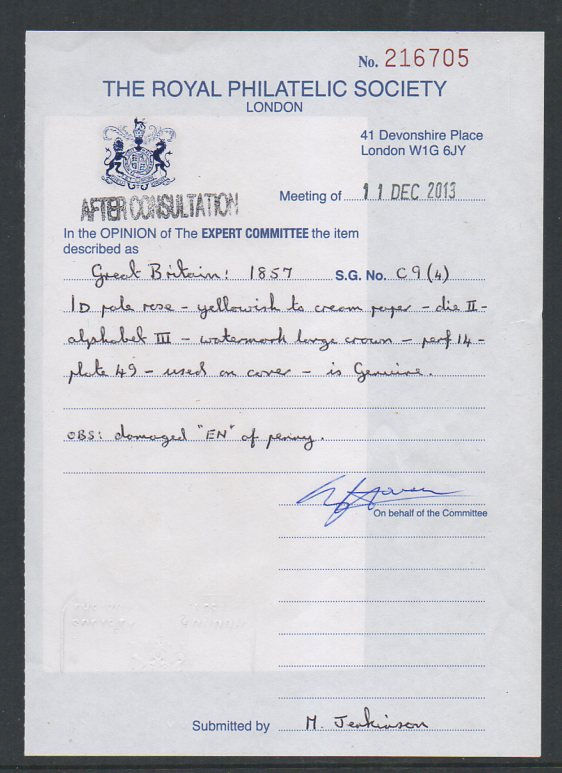 No. 216705
THE ROYAL PHILATELIC SOCIETY
LONDON
41 Devonshire Place
London W1G 6JY
AFTER CONSULTATION
Meeting of 11 DEC 2013
In the OPINION of The EXPERT COMMITTEE the item
described as
Great Britain: 1857 S.G. No. C9(4)
1D pale rose - yellowish to cream paper - die II -
alphabet III - watermark large crown - perf 14 -
plate 49 - used on cover - is Genuine.
OBS: damaged "EN" of penny.
On behalf of the Committee
Submitted by M. Jenkinson